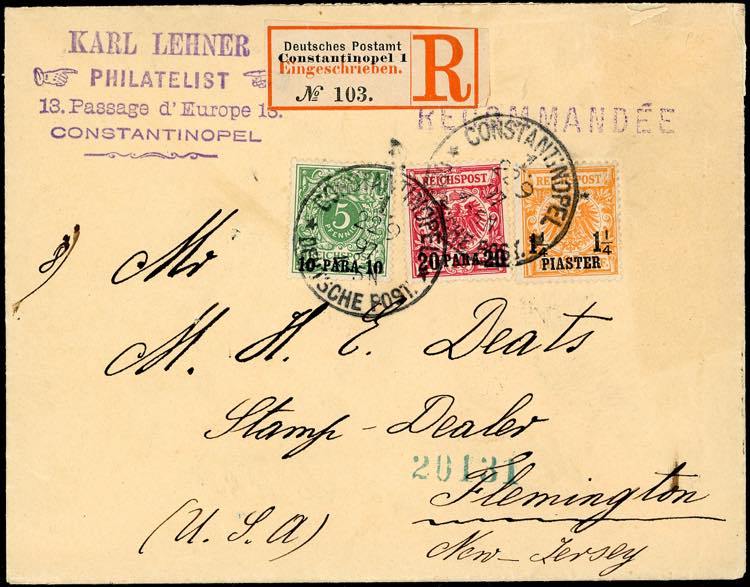 KARL LEHNER
PHILATELIST
13. Passage d'Europe 13.
CONSTANTINOPEL
Deutsches Postamt
Constantinopel 1
Eingeschrieben.
№ 103.
R
RECOMMANDÉE
5
PFENNIG
10 PARA 10
REICHSPOST
20 PARA 20
REICHSPOST
1¼ 1¼
PIASTER
CONSTANTINOPEL 1
DEUTSCHE POST.
CONSTANTINOPEL 1
DEUTSCHE POST
Mr
M. H. E. Deats
Stamp-Dealer
20131
Flemington
(U.S.A)
New-Jersey